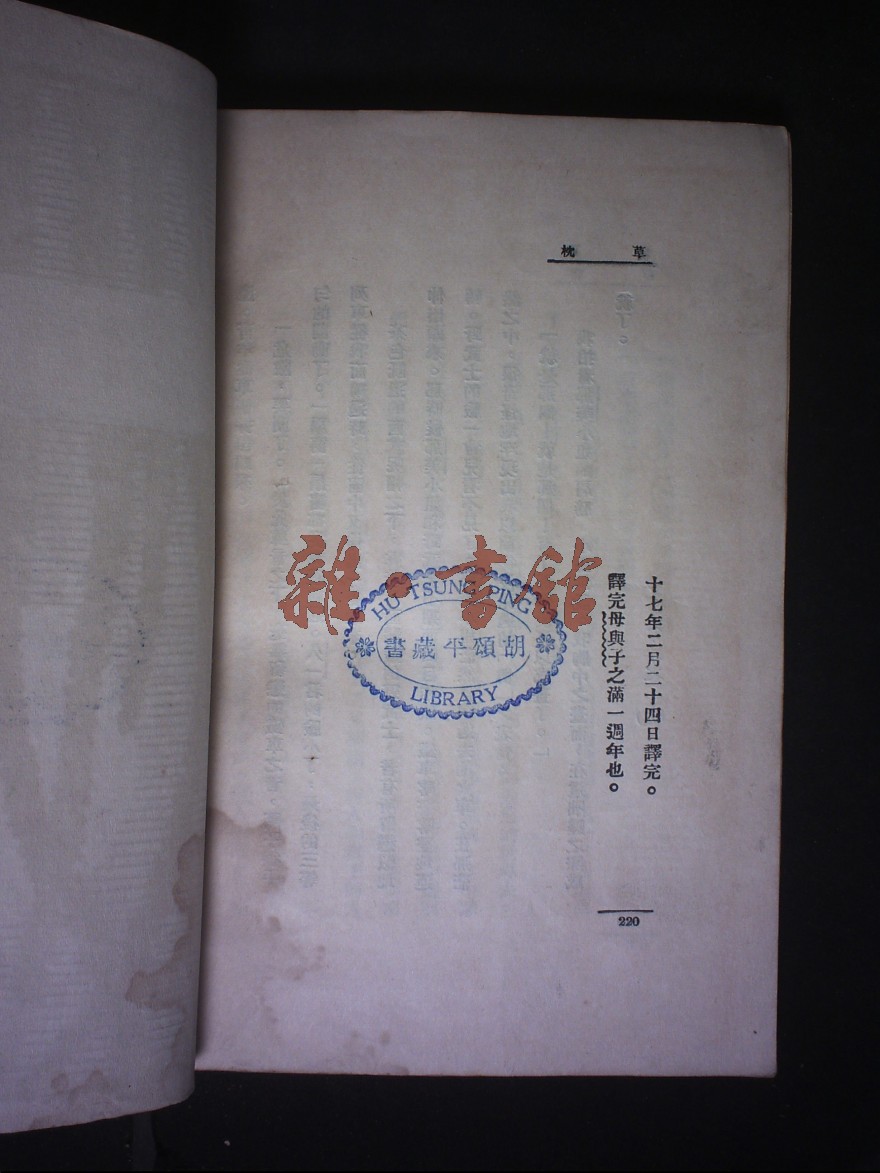 草枕
十七年二月二十四日譯完。
譯完母與子之滿一週年也。
220
雜·書館
HU TSUNG PING
胡頌平藏書
LIBRARY